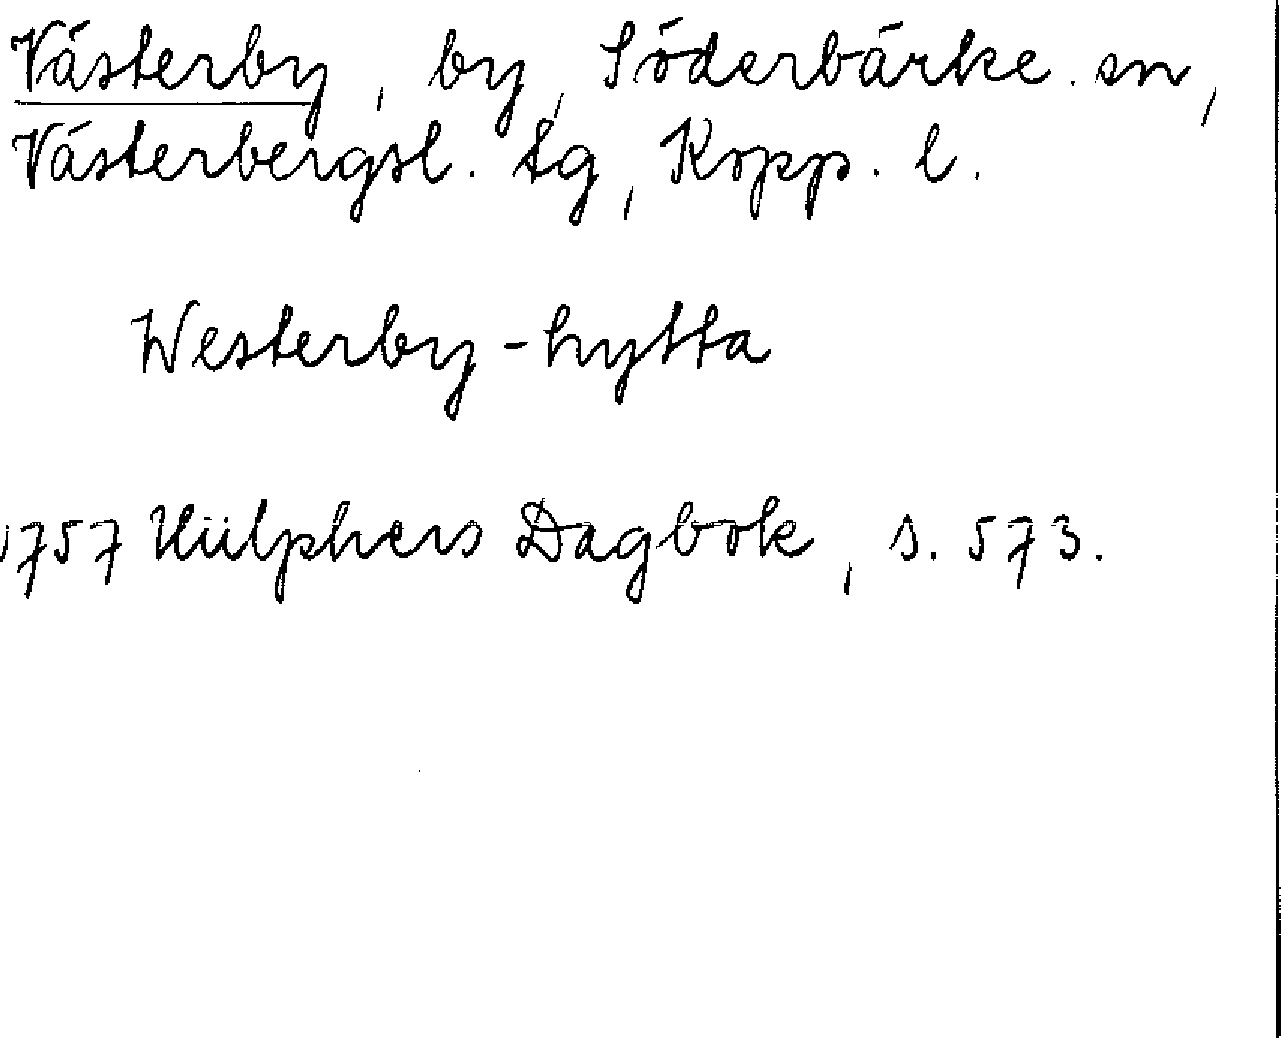 Västerby, by, Söderbärke sn,
Västerbergsl. tg, Kopp. l.
Westerby-hytta
1757 Hülphers Dagbok, s. 573.